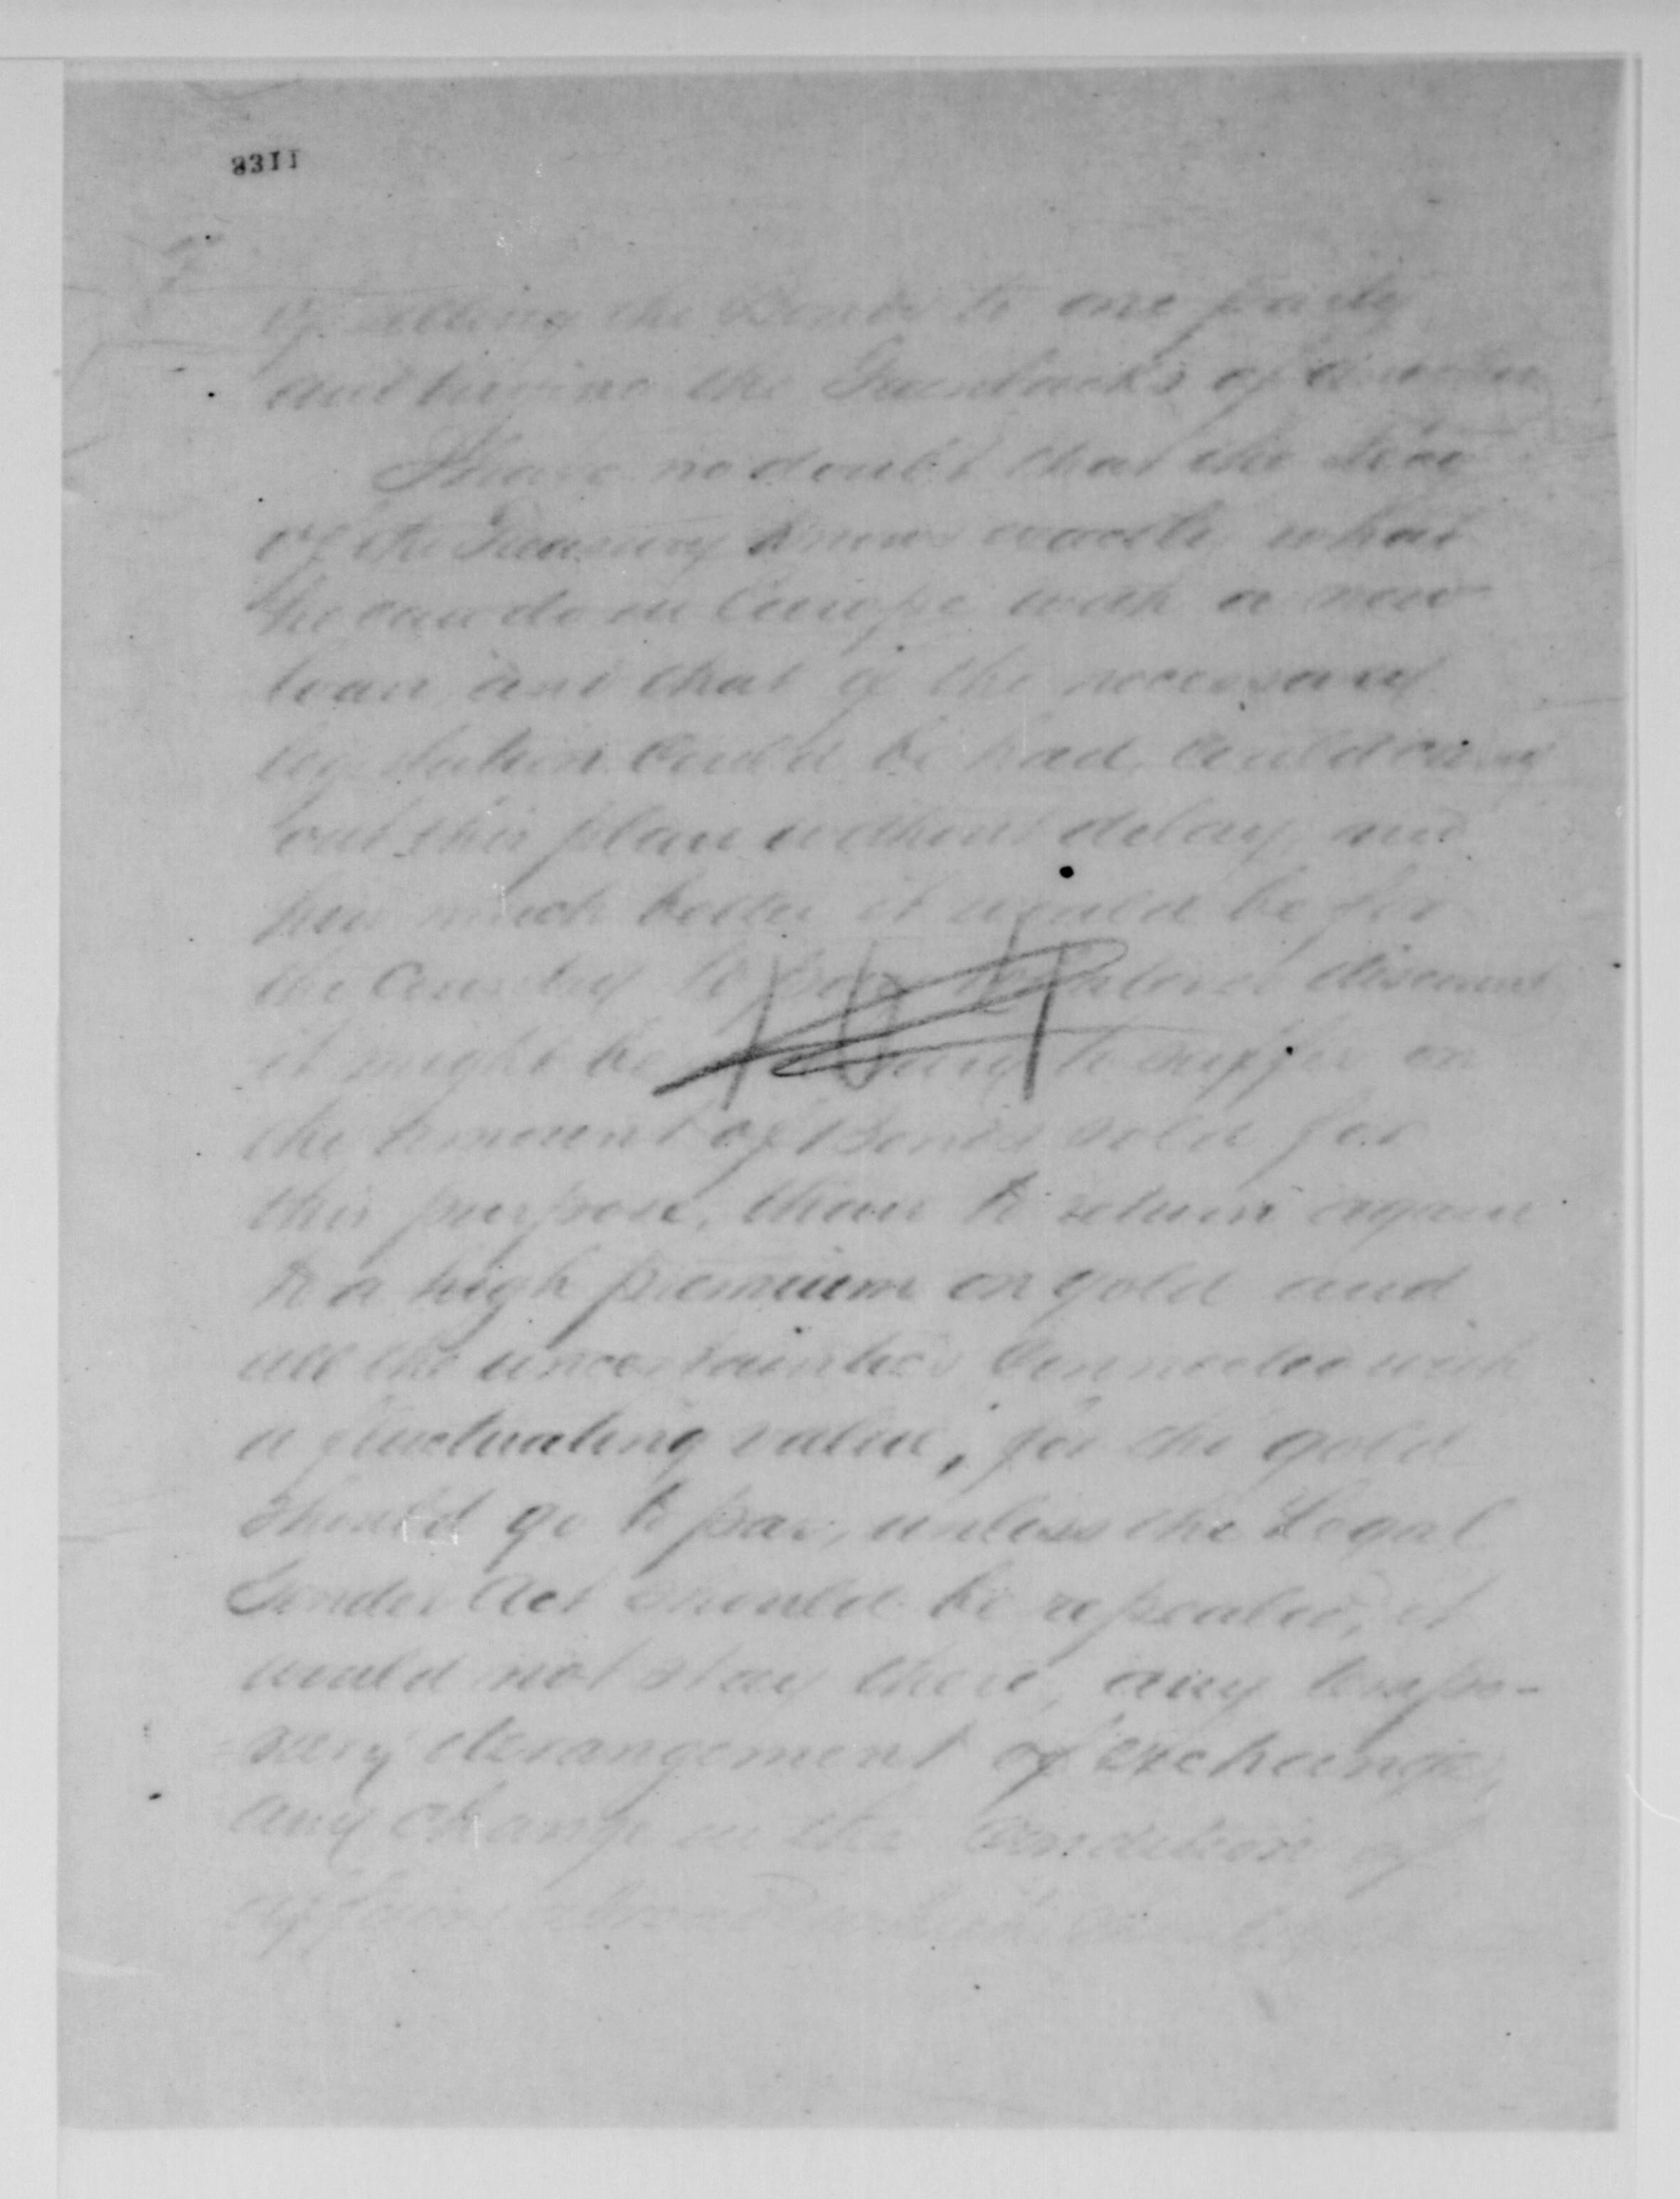 8311
of selling the Bonds to one party
and buying the Greenbacks of another
I have no doubt that the Secy
of the Treasury knows exactly what
he can do in Europe with a new
loan and that if the necessary
legislation could be had, could carry
out this plan without delay, and
how much better it would be for
the Country to pay discount
it might be to suffer on
the amount of Bonds sold for
this purpose, than to return again
to a high premium on gold and
all the uncertainties connected with
a fluctuating value, for tho gold
should go to par, unless the Legal
Tender Act should be repealed, it
would not stay there, any tempo-
rary derangement of exchange,
any change in the condition of
affairs abroad